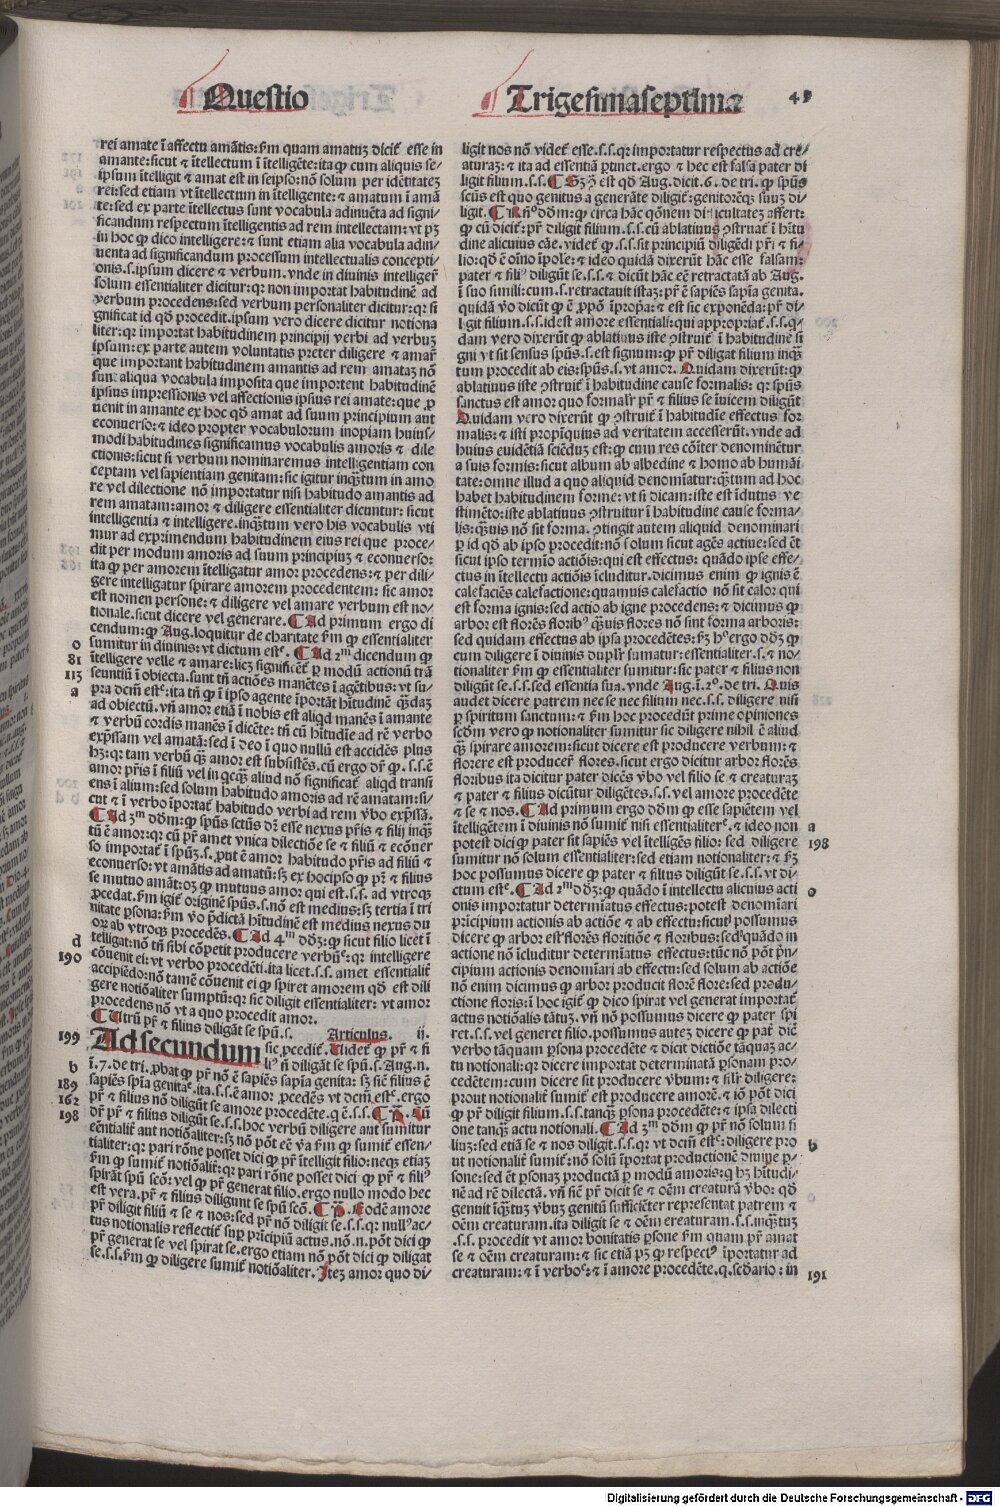 Questio
Trigesimaseptima 49
rei amate ĩ affectu amãtis: ẜm quam amatuʒ diciť esse in
amante: sicut ⁊ ĩtellectum ĩ ĩtelligẽte: ita ꝙ cum aliquis se-
ipsum ĩtelligit ⁊ amat est in seipso: nõ solum per idẽtitateʒ
rei: sed etiam vt ĩtellectum in ĩtelligente: ⁊ amatum ĩ amã
te: sed ex parte ĩtellectus sunt vocabula adinuẽta ad signi-
ficandum respectum ĩtelligentis ad rem intellectam: vt pʒ
in hoc ꝙ dico intelligere: ⁊ sunt etiam alia vocabula adin-
uenta ad significandum processum intellectualis concepti-
onis. s. ipsum dicere ⁊ verbum. vnde in diuinis intelliger̃
solum essentialiter dicitur: qꝛ non importat habitudinẽ ad
verbum procedens: sed verbum personaliter dicitur: qꝛ si
gnificat id qđ procedit. ipsum vero dicere dicitur notiona
liter: qꝛ importat habitudinem principij verbi ad verbuʒ
ipsum: ex parte autem voluntatis preter diligere ⁊ amar̃
que important habitudinem amantis ad rem amataʒ nõ
sunt aliqua vocabula imposita que importent habitudinẽ
ipsius impressionis vel affectionis ipsius rei amate: que ꝓ
uenit in amante ex hoc qđ amat ad suum principium aut
econuerso: ⁊ ideo propter vocabulorum inopiam huius-
modi habitudines significamus vocabulis amoris ⁊ dile
ctionis: sicut si verbum nominaremus intelligentiam con
ceptam vel sapientiam genitam: sic igitur inq̃tum in amo
re vel dilectione nõ importatur nisi habitudo amantis ad
rem amatam: amor ⁊ diligere essentialiter dicuntur: sicut
intelligentia ⁊ intelligere. inq̃tum vero his vocabulis vti
mur ad exprimendum habitudinem eius rei que proce-
dit per modum amoris ad suum principiuʒ ⁊ econuerso:
ita ꝙ per amorem ĩtelligatur amor procedens: ⁊ per dili-
gere intelligatur spirare amorem procedentem: sic amor
est nomen persone: ⁊ diligere vel amare verbum est no-
tionale. sicut dicere vel generare. ¶ Ad primum ergo di
cendum: ꝙ Aug. loquitur de charitate ẜm ꝙ essentialiter
o
sumitur in diuinis: vt dictum est. ¶ Ad 2m dicendum ꝙ
81
ĩtelligere velle ⁊ amare: licʒ significẽť ꝑ modũ actionũ trã
113
seuntiũ ĩ obiecta. sunt tñ actiões manẽtes ĩ agẽtibus: vt su-
a
pra dcm̃ est: ita tñ ꝙ ĩ ipso agente ĩportãt hĩtudinẽ q̃daʒ
ad obiectũ. vñ amor etiã ĩ nobis est aliqđ manẽs ĩ amante
⁊ verbũ cordis manẽs ĩ dicẽte: tñ cũ hĩtudĩe ad rẽ verbo
exp̃ssam vel amatã: sed ĩ deo ĩ quo nullũ est accidẽs plus
hʒ: qꝛ tam verbũ q̃ʒ amor est subsistẽs. cũ ergo dr̃ ꝙ .s.s. ẽ
amor pr̃is ĩ filiũ vel in qcq̃ʒ aliud nõ significať aliqđ transi
ens ĩ alium: sed solum habitudo amoris ad rẽ amatam: si-
cut ⁊ ĩ verbo ĩportať habitudo verbi ad rem ṽbo exp̃ssã.
¶ Ad 3m dđm: ꝙ spũs sctũs dr̃ esse nexus pr̃is ⁊ filij inq̃ʒ
tũ ẽ amor: qꝛ cũ pr̃ amet vnica dilectiõe se ⁊ filiũ ⁊ ecõuer
so importať ĩ spũʒ. s. ꝓut ẽ amor habitudo pr̃is ad filiũ ⁊
econuerso: vt amãtis ad amatũ: sʒ ex hocipso ꝙ pr̃ ⁊ filius
se mutuo amãt: oʒ ꝙ mutuus amor qui est .s.s. ad vtroqʒ
ꝓcedat. ẜm igiť originẽ spũs. s. nõ est medius: sʒ tertia ĩ tri
nitate ꝑsona: ẜm ṽo p̃dictã hĩtudinẽ est medius nexus du
orꝝ ab vtroqʒ procedẽs. ¶ Ad 4m dđʒ: ꝙ sicut filio licet ĩ
d
telligat: nõ tñ sibi cõpetit producere verbũ: qꝛ intelligere
190
cõuenit ei: vt verbo procedẽti. ita licet. s.s. amet essentialiť
accipiẽdo: nõ tamẽ cõuenit ei ꝙ spiret amorem qđ est dili
gere notiõaliter sumptũ: qꝛ sic diligit essentialiter: vt amor
procedens nõ vt a quo procedit amor.
¶ Utrũ pr̃ ⁊ filius diligãt se spũ. s. Articulus. ij.
199
Ad secundum sic ꝓcediť. Uideť ꝙ pr̃ ⁊ fi
liꝰ ñ diligãt se spũ. s. Aug. n.
b
ĩ. 7. de tri. ꝓbat ꝙ pr̃ nõ ẽ sapiẽs sapĩa genita: sʒ sicẽ filius ẽ
189
sapiẽs sp̃ia genita. ita. s.s. ẽ amor ꝓcedẽs vt dcm̃ est. ergo
162
pr̃ ⁊ filius nõ diligũt se amore procedẽte. q̃ ẽ. s.s. ¶ P̃. Cũ
198
dr̃ pr̃ ⁊ filius diligũt se. s.s. hoc verbũ diligere aut sumitur
eẽntialiť aut notiõaliter: sʒ nõ põt eẽ ṽa ẜm ꝙ sumiť essen-
tialiter: qꝛ pari rõne posset dici ꝙ pr̃ ĩtelligit filio: neqʒ etiaʒ
ẜm ꝙ sumiť notiõaliť: qꝛ pari rõne posset dici ꝙ pr̃ ⁊ filiꝰ
spirãt spũ scõ: vel ꝙ pr̃ generat filio. ergo nullo modo hec
est vera. pr̃ ⁊ filius diligunt se spũ scõ. ¶ P̃. Eodẽ amore
pr̃ diligit filiũ ⁊ se ⁊ nos: sed pr̃ nõ diligit se. s.s. qꝛ nullꝰ ac-
tus notionalis reflectiť suꝑ prĩcipiũ actus. nõ. n. põt dici ꝙ
pr̃ generat se vel spirat se. ergo etiam nõ põt dici ꝙ diligat
se. s.s. ẜm ꝙ diligere sumiť notiõaliter. Iteʒ amor quo di-
ligit nos nõ videť esse. s.s. qꝛ importatur respectus ad cre-
aturaʒ: ⁊ ita ad essentiã ptinet. ergo ⁊ hec est falsa pater di
ligit filium. s.s. ¶ Sʒ ꝯ̃ est qđ Aug. dicit. 6. de tri. ꝙ spũs
scũs est quo genitus a generãte diligiť: genitorẽqʒ suuʒ di
ligit. ¶ Rñ° dđm: ꝙ circa hãc qõnem difficultateʒ affert:
ꝙ cũ diciť: pr̃ diligit filium. s.s. cũ ablatiuus ꝯstruať ĩ hĩtu
dine alicuius cãe. videť ꝙ. s.s. sit principiũ diligẽdi pr̃i ⁊ fi-
lio: qđ ẽ oĩno ĩpole: ⁊ ideo quidã dixerũt hãc esse falsam:
pater ⁊ filiꝰ diligũt se. s.s. ⁊ dicũt hãc eẽ retractatã ab Aug.
ĩ suo simili: cum. s. retractauit istaʒ: pr̃ ẽ sapiẽs sapĩa genita.
quidã ṽo dicũt ꝙ ẽ ꝓpõ ĩpropa: ⁊ est sic exponẽda: pr̃ di-
ligit filium. s.s. idest amore essentiali: qui appropriať. s.s. q-
dam vero dixerũt ꝙ ablatiuus iste ꝯstruiť ĩ habitudine si
gni vt sit sensus spũs. s. est signum: ꝙ pr̃ diligat filium inqʒ
tum procedit ab eis: spũs. s. vt amor. Quidam dixerũt: ꝙ
ablatiuus iste ꝯstruiť ĩ habitudine cause formalis: qꝛ spũs
sanctus est amor quo formalr̃ pr̃ ⁊ filius se ĩuicem diligũt
Quidam vero dixerũt ꝙ ꝯstruiť ĩ habitudĩe effectus for
malis: ⁊ isti prop̃quius ad veritatem accesserũt. vnde ad
huius euidẽtiã sciẽdũʒ est: ꝙ cum res cõiter denominẽtur
a suis formis: sicut album ab albedine ⁊ homo ab humãi
tate: omne illud a quo aliquid denomĩatur: q̃tum ad hoc
habet habitudinem forme: vt si dicam: iste est ĩdutus ve
stimẽto: iste ablatiuus ꝯstruitur ĩ habitudine cause forma-
lis: q̃uis nõ sit forma. ꝯtingit autem aliquid denominari
ꝑ id qđ ab ipso procedit: nõ solum sicut agẽs actiue: sed ẽt
sicut ipso termĩo actiõis: qui est effectus: quãdo ipse effe-
ctus in ĩtellectu actiõis ĩcluditur. dicimus enim ꝙ ignis ẽ
calefaciẽs calefactione: quamuis calefactio nõ sit calor qui
est forma ignis: sed actio ab igne procedens: ⁊ dicimus ꝙ
arbor est florẽs floribꝰ q̃uis flores nõ sint forma arboris:
sed quidam effectus ab ipsa procedẽtes: sʒ h° ergo dđʒ ꝙ
cum diligere ĩ diuinis duplr̃ sumatur: essentialiter. s. ⁊ no-
tionaliter ẜm ꝙ essentialiter sumitur: sic pater ⁊ filius non
diligũt se. s.s. sed essentia sua. vnde Aug. ĩ. 2°. de tri. Quis
audet dicere patrem nec se nec filium nec. s.s. diligere nisi
ꝑ spiritum sanctum: ⁊ ẜm hoc procedũt prime opiniones
scđm vero ꝙ notionaliter sumitur sic diligere nihil ẽ aliud
q̃ʒ spirare amorem: sicut dicere est producere verbum: ⁊
florere est producer̃ flores. sicut ergo dicitur arbor florẽs
floribus ita dicitur pater dicẽs ṽbo vel filio se ⁊ creaturaʒ
⁊ pater ⁊ filius dicũtur diligẽtes. s.s. vel amore procedẽte
⁊ se ⁊ nos. ¶ Ad primum ergo dđm ꝙ esse sapiẽtem vel
ĩtelligẽtem ĩ diuinis nõ sumiť nisi essentialiter. ⁊ ideo non a
potest dici ꝙ pater sit sapiẽs vel ĩtelligẽs filio: sed diligere 198
sumitur nõ solum essentialiter: sed etiam notionaliter: ⁊ sʒ
hoc possumus dicere ꝙ pater ⁊ filius diligũt se. s.s. vt di-
ctum est. ¶ Ad 2m dđʒ: ꝙ quãdo ĩ intellectu alicuius acti o
onis importatur determĩatus effectus: potest denomĩari
prĩcipium actionis ab actiõe ⁊ ab effectu: sicut possumus
dicere ꝙ arbor est florẽs floritiõe ⁊ floribus: sed quãdo in
actione nõ ĩcluditur determĩatus effectus: tũc nõ põt p̃n-
cipium actionis denomĩari ab effectu: sed solum ab actiõe
nõ enim dicimus ꝙ arbor producit florẽ flore: sed produ-
ctione floris: ĩ hoc igiť ꝙ dico spirat vel generat importať
actus notiõalis tãtuʒ. vñ nõ possumus dicere ꝙ pater spi
ret. s.s. vel generet filio. possumus auteʒ dicere ꝙ pať diẽ
verbo tãquam ꝑsona procedẽte ⁊ dicit dictiõe tãquaʒ ac-
tu notionali: qꝛ dicere importat determinatã ꝑsonam pro-
cedẽtem: cum dicere sit producere ṽbum: ⁊ silr̃ diligere:
prout notionaliť sumiť est producere amorẽ: ⁊ iõ põt dici
ꝙ pr̃ diligit filium. s.s. tanqʒ ꝑsona procedẽte: ⁊ ipsa dilecti
one tanqʒ actu notionali. ¶ Ad 3m dđm ꝙ pr̃ nõ solum fi
liuʒ: sed etiã se ⁊ nos diligit. s.s. qꝛ vt dcm̃ est: diligere pro b
ut notionaliť sumiť: nõ solũ ĩportat productionẽ diuine ꝑ-
sone: sed ẽt ꝑsonaʒ productã ꝑ modũ amoris: q̃ hʒ hĩtudi-
nẽ ad rẽ dilectã. vñ sicẽ pr̃ dicit se ⁊ oẽm creaturã ṽbo: qđ
genuit ĩq̃ʒtuʒ ṽbuʒ genitũ sufficiẽter representat patrem ⁊
oẽm creaturam. ita diligit se ⁊ oẽm creaturam. s.s. inq̃tum
.s.s. procedit vt amor bonitatis ꝑsone ẜm quam pr̃ amat
se ⁊ oẽm creaturam: ⁊ sic etiã pʒ ꝙ respectꝰ ĩportatur ad
creaturam: ⁊ ĩ verbo: ⁊ ĩ amore procedẽte. q. scđario: in 191
Digitalisierung gefördert durch die Deutsche Forschungsgemeinschaft - DFG